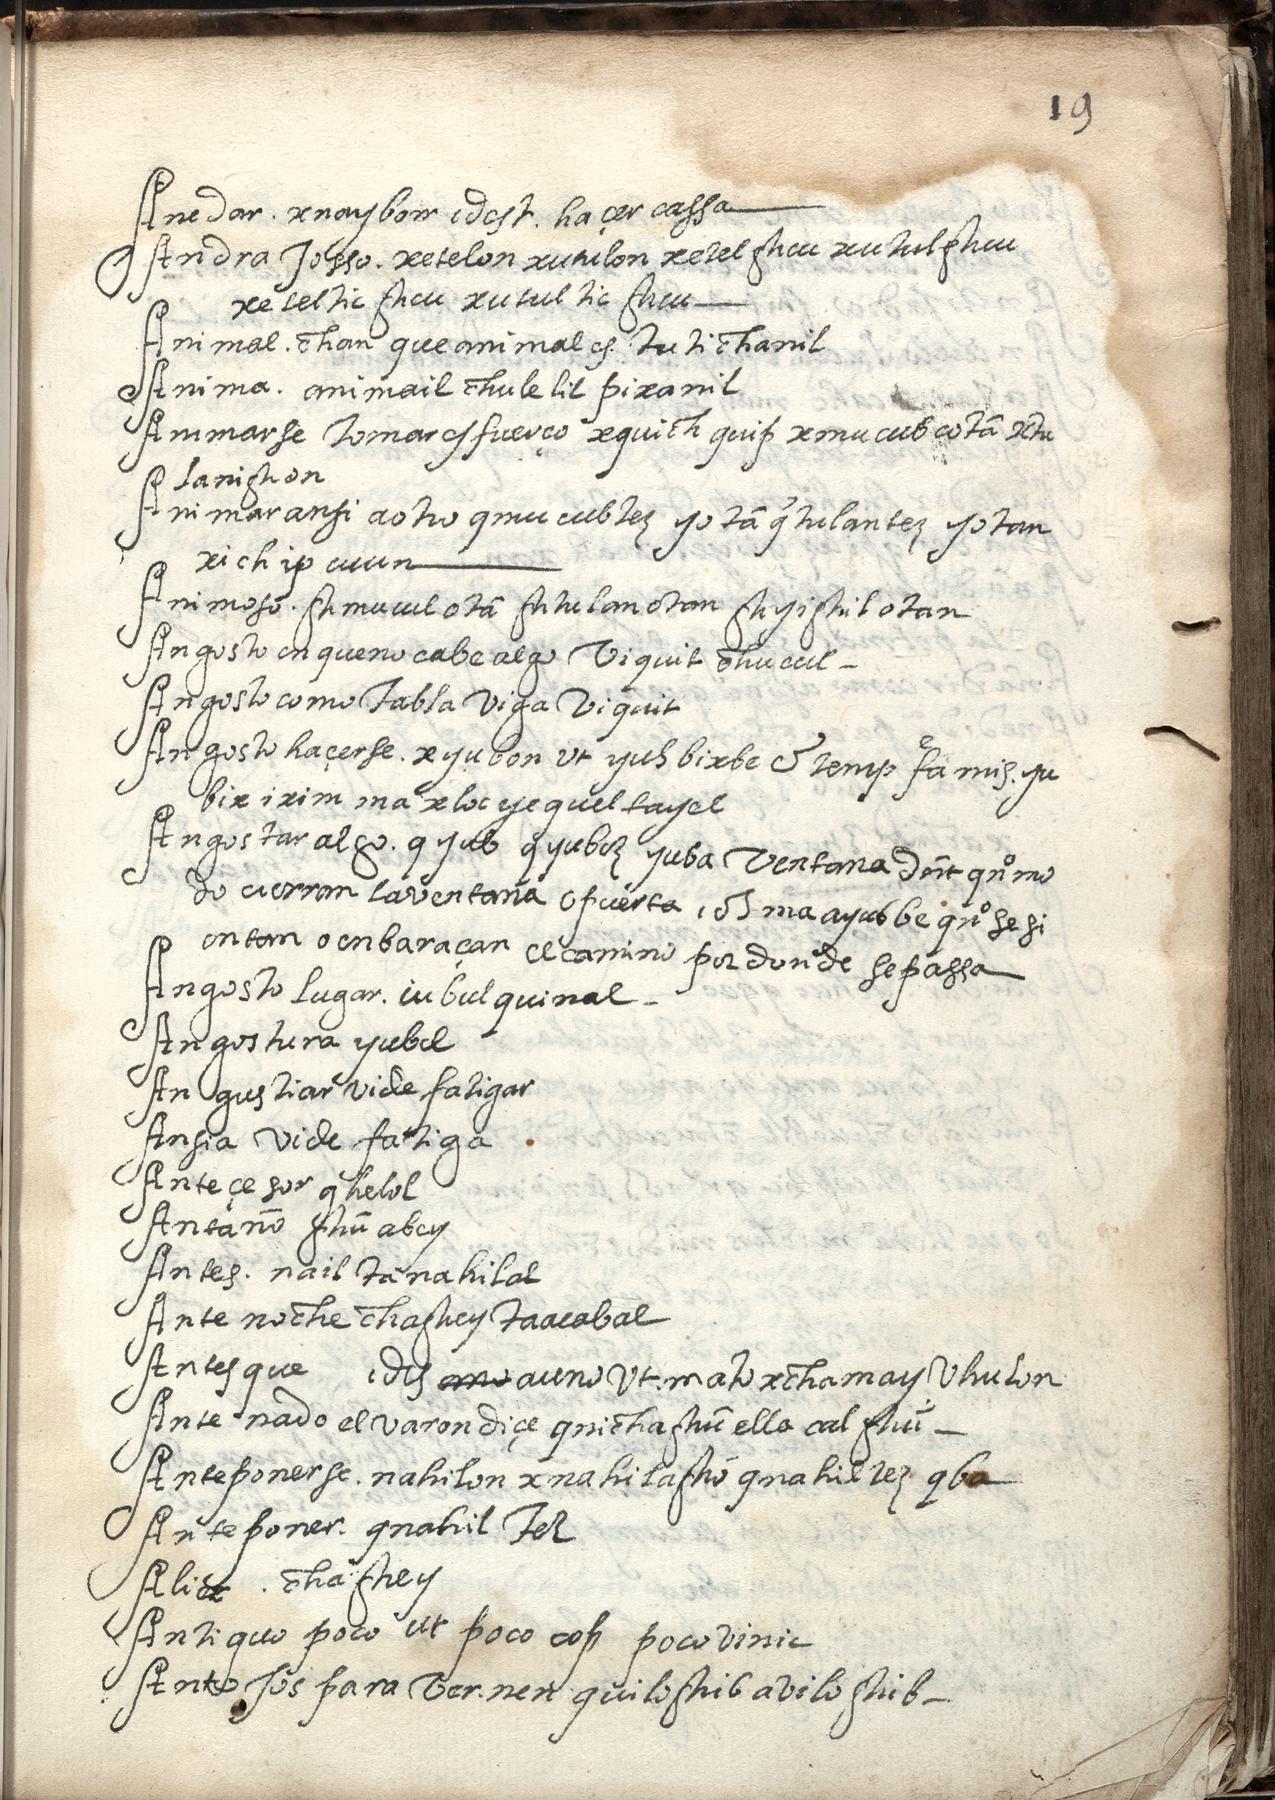 19
Anedar. xnaybon idest. haçer cassa
Andra Josso. xetelon xutulon xetelghcu xutulghcu
xeteltic ghcu xutultic ghcu
Animal. chan que animal es. tuti chanil
Anima. animail chulelil pixanil
Anmarse tomar esfuerço xquich quip xmucub cotã xtu
lanighon
Animar ansi aotro qmucubtez yotã q̃tulantez yotan
xichip cuun
Animoso. ghmucul otã ghtulanotan ghyighil otan
Angosto en que no cabe algo Viquit chucul
Angosto como Tabla Viga Viquit
Angosto haçerse. xyubon Vt yuh bixbe & temp.º famis. yu
bix ixim ma xloc yequel tayel
Angostar algo. q yub q yubez yuba Ventana dnt̃ qnº mo
do cierran la ventana opuerta, ma ayubbe qnº se si
entan o enbaraçan el camino por donde se passa
Angosto lugar. iubul quinal
Angostura yubel
Angustiar vide fatigar
Ansia vide fatiga
Anteçesor qhelol
Antaño ghũ abey
Antes. nail tanahilal
Ante noche chaghey taacabal
Antes que idest auno Vt. mato xchamay Vhulon
Antenado el varon diçe qnichaghũ ella cal ghũ
Anteponerse. nahilon xnahilaghõ qnahiltez qba
Anteponer. qnahil Tez
Alia . chaghey
Antiguo poco ut poco cop poco vinic
Antojos para Ver. nen quiloghib aviloghib